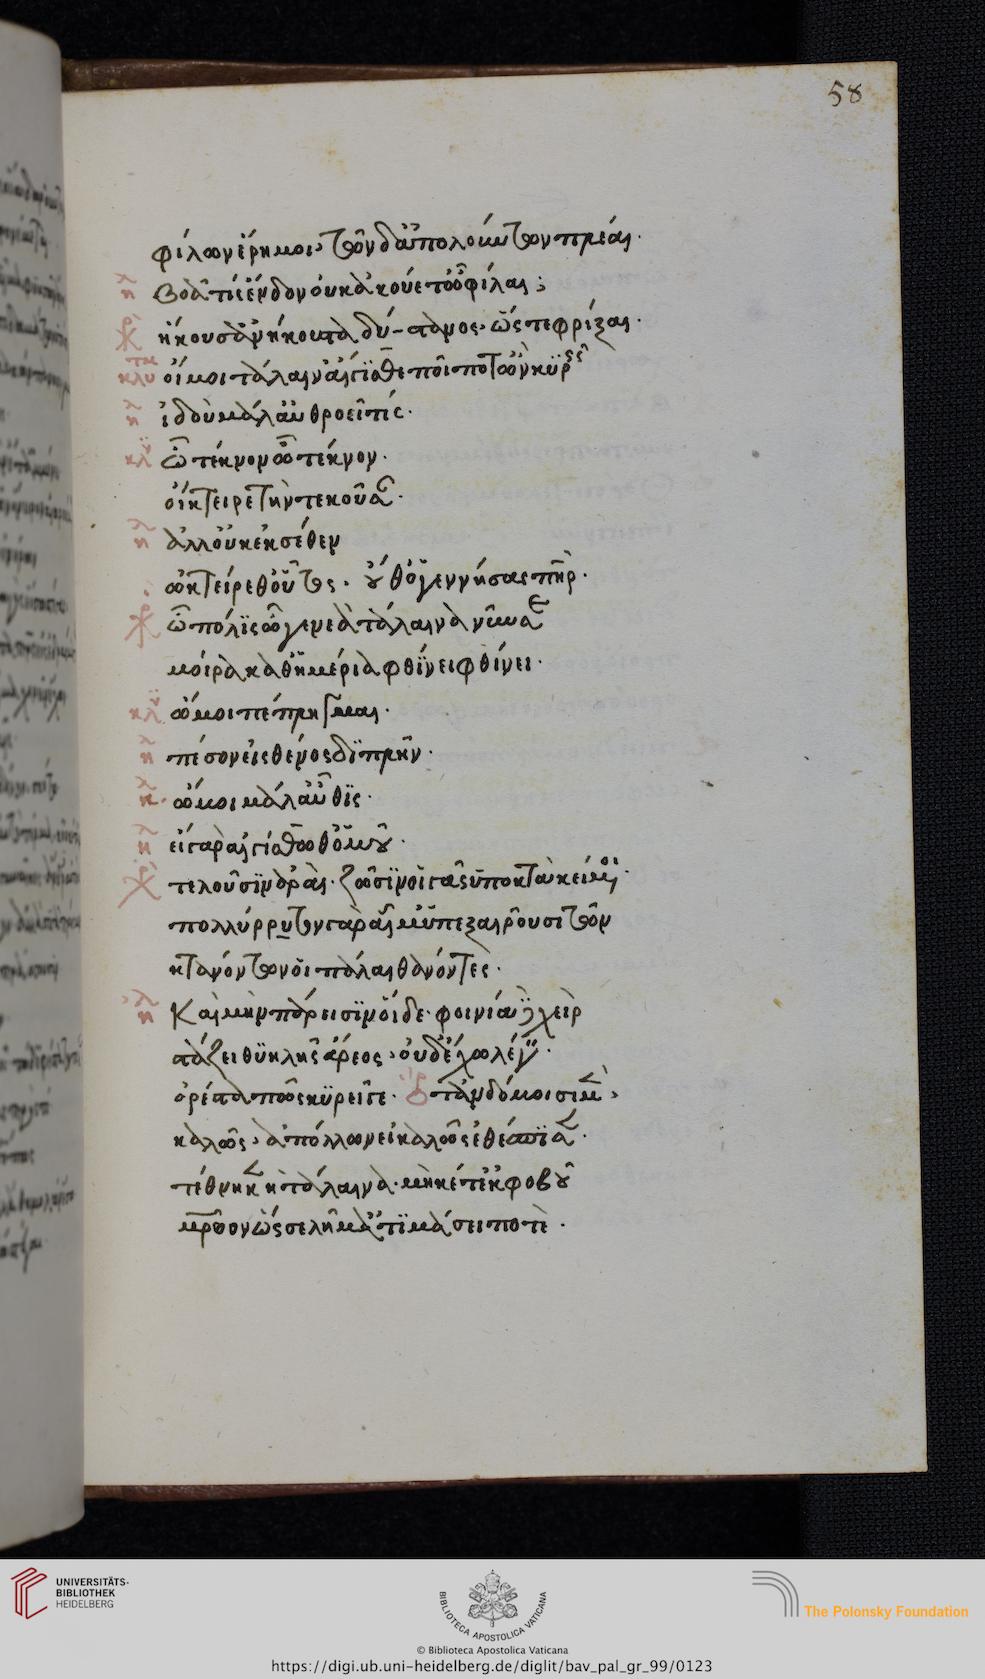 58
φίλων ἔρημοι· τῶν δ' ἀπολούντων πλέαι·
ηλ βοᾶ τις ἔνδον οὐκ ἀκούετ' ὦ φίλαι;
χρ ἤκουσ' ἀνήκουστα δύστανος· ὥστε φρίξαι·
κλυτ οἴμοι τάλαιν' αἴγισθε ποῖ ποτ' ὢν κυρεῖς
ηλ ἰδοὺ μάλ' αὖ θροεῖ τίς·
κλυ ὦ τέκνον ὦ τέκνον·
οἴκτειρε τὴν τεκοῦσαν·
ηλ ἀλλ' οὐκ ἐκ σέθεν
ὠκτείρεθ' οὗτος· οὔθ' ὁ γεννήσας πατήρ·
χρ ὦ πόλις ὦ γενεὰ τάλαινα νῦν σε
μοῖρα καθημερία φθίνει φθίνει·
κλυ ὤμοι πέπληγμαι·
ηλ παῖσον εἰ σθένος διπλῆν·
κλ ὤμοι μάλ' αὖθις·
ηλ εἰ γὰρ αἰγίσθω θ' ὁμοῦ·
χρ τελοῦσιν ἀραί· ζῶσιν οἱ γᾶς ὑποκτα κείμενοι·
πολλύρρυτον γὰρ αἷμ' ὑπεξαιροῦσι τῶν
κτανόντων οἱ πάλαι θανόντες·
ηλ Καὶ μὴν πάρεισιν οἵδε· φοινία δὲ χεὶρ
στάζει θυηλῆς ἄρεος· οὐδ' ἔχω λέγειν·
ὀρέστα πῶς κυρεῖτε· ορ τἀν δόμοισι μὲν·
καλῶς· ἀπόλλων εἰ καλῶς ἐθέσπισεν·
τέθνηκεν ἡ τάλαινα· μηκέτ' ἐκφοβοῦ
μητρῷον ὡς σε λῆμ' ἀτιμάσει ποτὲ·
UNIVERSITÄTS-
BIBLIOTHEK
HEIDELBERG
BIBLIOTECA APOSTOLICA VATICANA
The Polonsky Foundation
© Biblioteca Apostolica Vaticana
https://digi.ub.uni-heidelberg.de/diglit/bav_pal_gr_99/0123